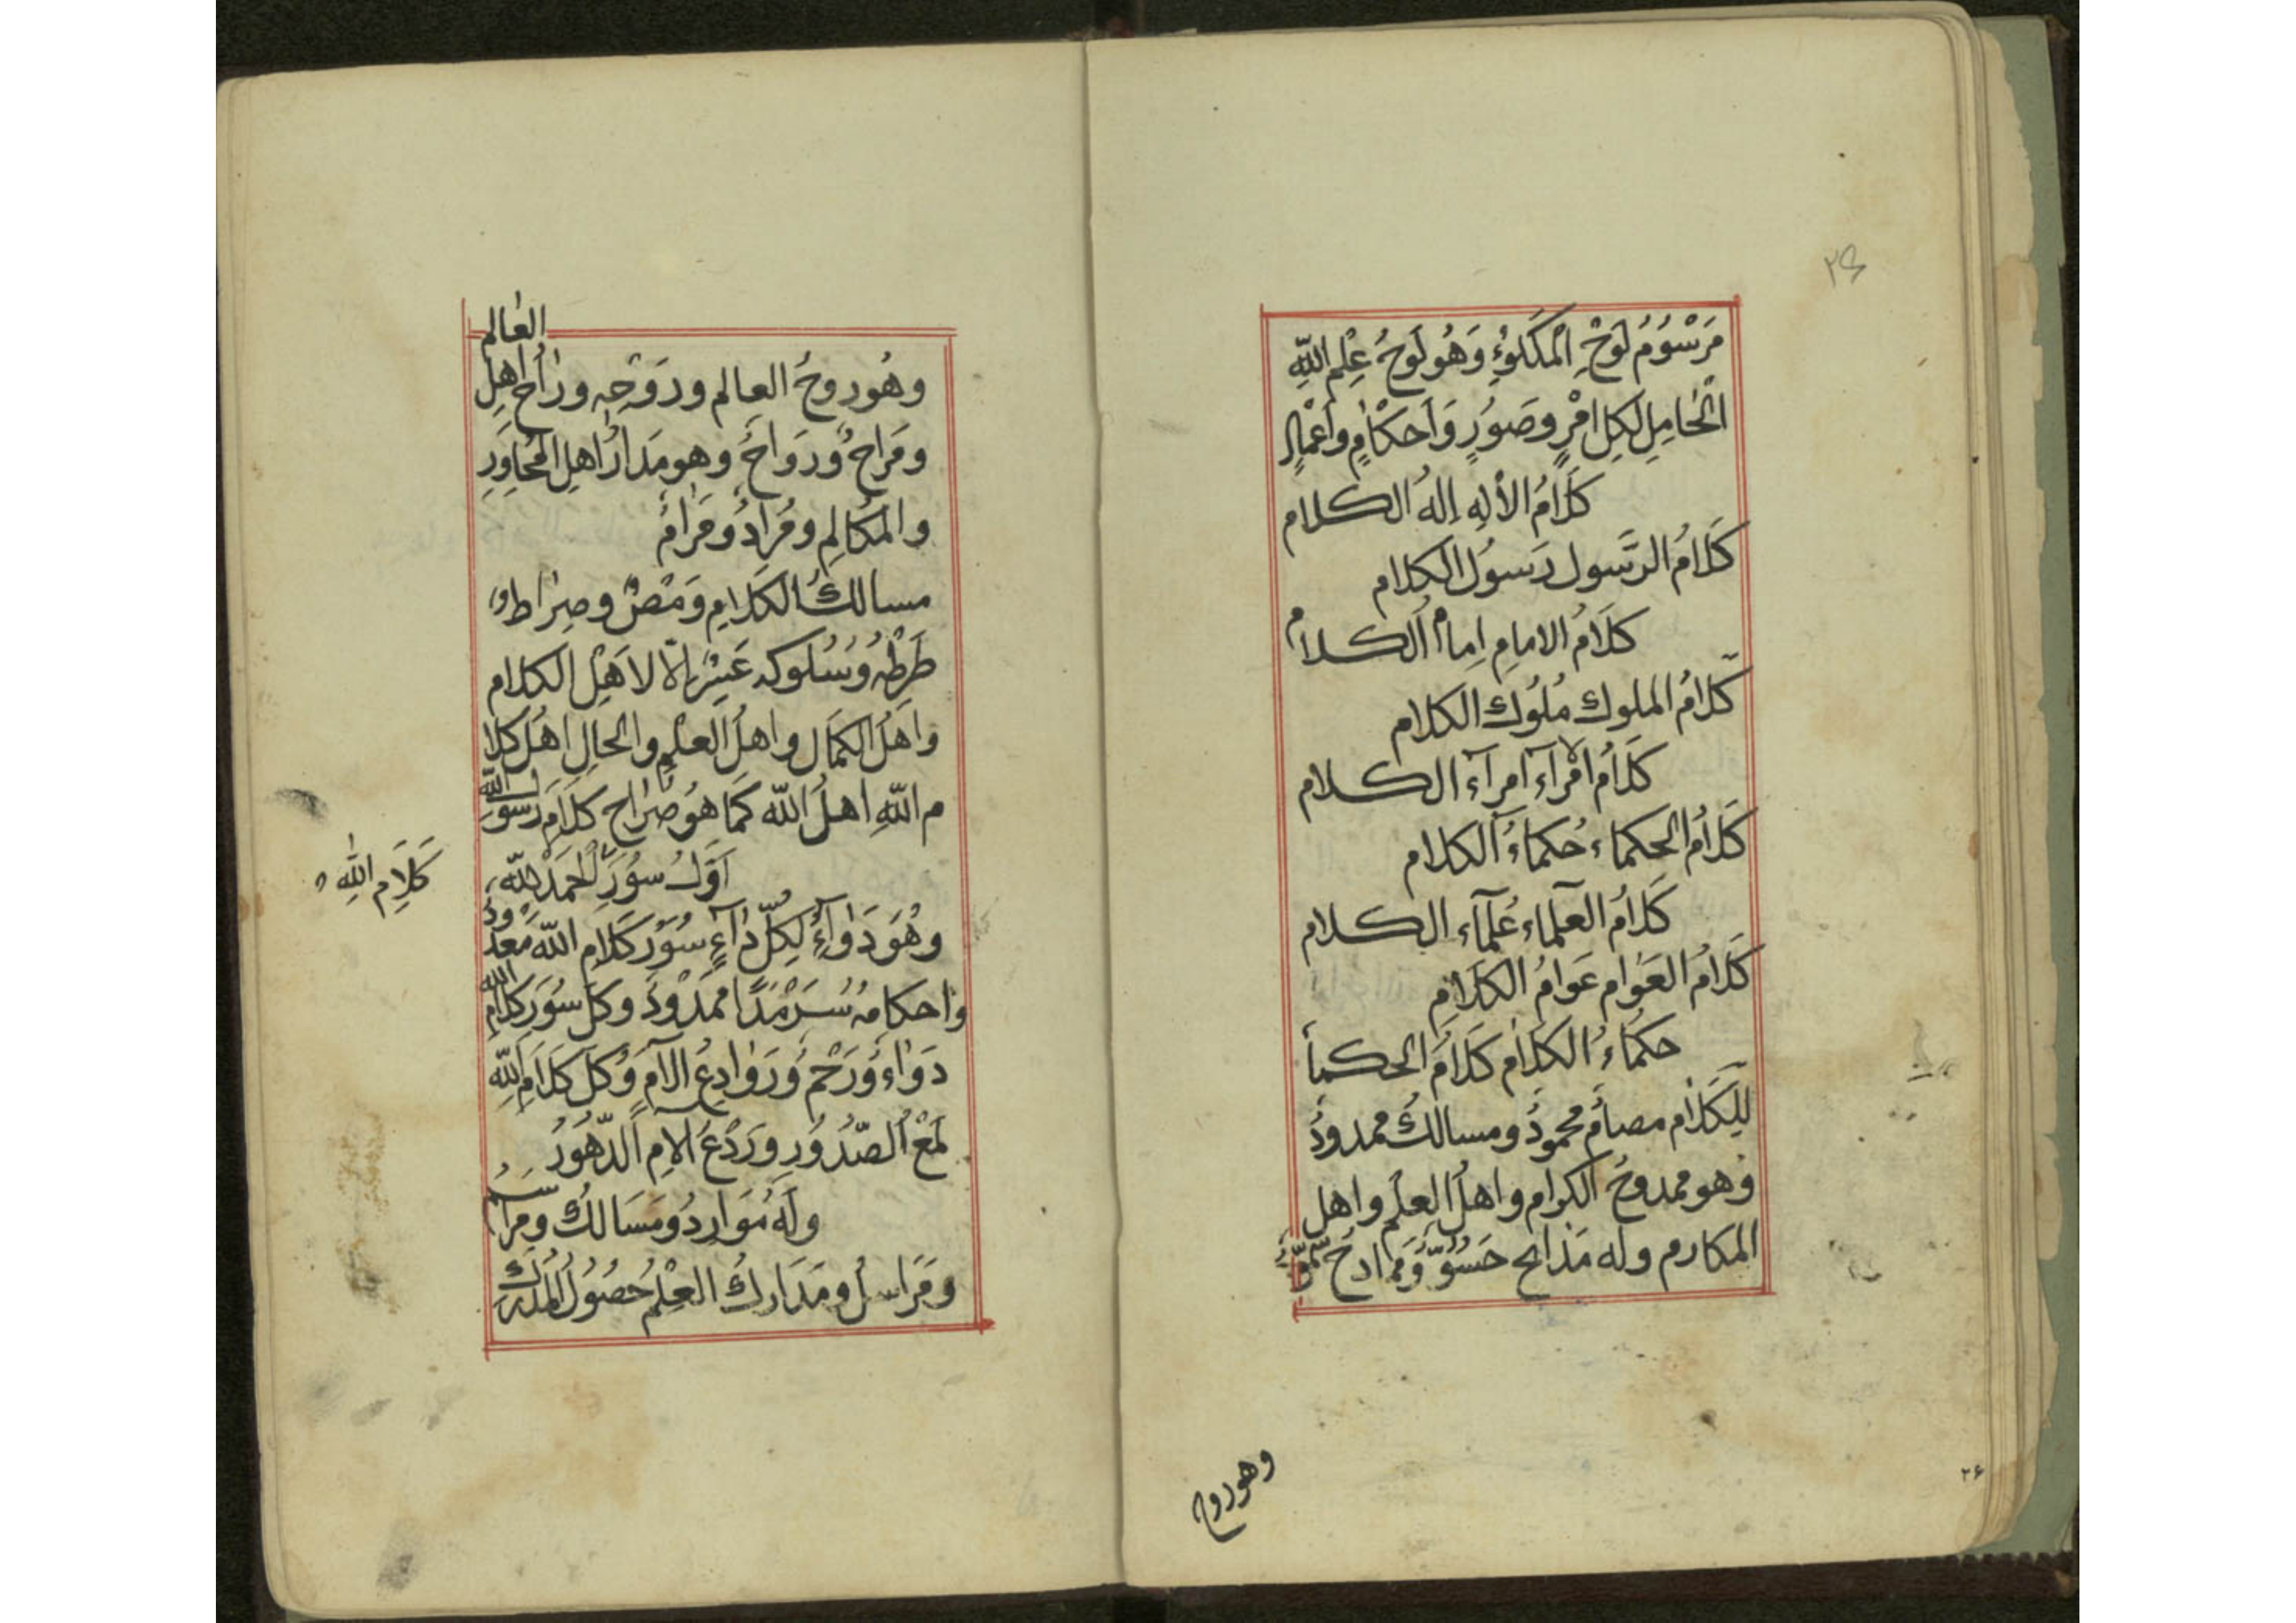 ٢٤
مَرْسُوُمُ لَوْحِ الْمَكَلوُءِ وَهُو لَوحُ عِلْمِ اللّٰهِ
الْحَامِلِ لِكِلِ امْرٍ وصَوُرٍ وَاَحكْامٍ واَعْمالٍ
كَلَامُ الألِهِ اِلهُ الكلام
كَلَامُ الرَّسول رَسوُل الكلام
كلَامُ الامامِ اِمامُ الكلام
كلامُ الملوك مُلوُك الكلام
كَلَامُ الامْرآءِ امرآء الكلام
كَلَامُ الحكماء حُكماءُ الكلام
كَلَامُ العلماء عُلمآء الكلام
كَلَامُ العَوام عَوامُ الكلامِ
حكماءُ الكلام كَلامُ الحكمأ
لِلكَلام مصامُ محمودُ ومسالكُ ممدودُ
وهو ممدوحُ الكرام واهلُ العلمِ واهل
المكارم وله مَدائح حَسُوّ ومَمادحُ سموّ
وهوروح
٢٤
العٰالم
وهُوروحُ العالم ورَوَحِه ورٰاحُ اهلِ
ومَراحُ ورَواحُ وهو مَدارُ اهلِ المَحاوِرِ
والمَكالِمِ ومُرادُ ومَرامُ
مسالكُ الكلامِ ومَصٌ وصِراط و
طَرطهُ وَسُلوكه عَسِرُ اِلّا لاَهلِ الكلام
واَهلُ الكمَال واهلُ العلمِ والحالِ اهلُ كلا
م اللّٰهِ اهلُ اللّٰه كَما هوُ صِراح كلَامِ رسول اللّٰه
اَوّلُ سوُرَ الحَمدُ للّٰه
كَلَامِ اللّٰهِ
وهُوَ دَوآءُ لِكلِّ دآءٍ سُوَرُ كلَامِ اللّٰه مَعدوُدٌ
واحكامهُ سَرْمَدًا ممدْودٌ وكلّ سُوَر كلَام اللّٰه
دَواءُ ورَحْمُ ورَوٰادِعُ الآمٍ وكُل كَلَامِ اللّٰهِ
لَمعُ الصّدوُرِ ورَدْعُ الامِ الدّهُورُ
ولَهُ مَوَارِدُ ومَسَالكُ ومَراسمُ
ومَرَاسلُ ومَدَاركُ العِلْمُ حُصُولُ المدرك